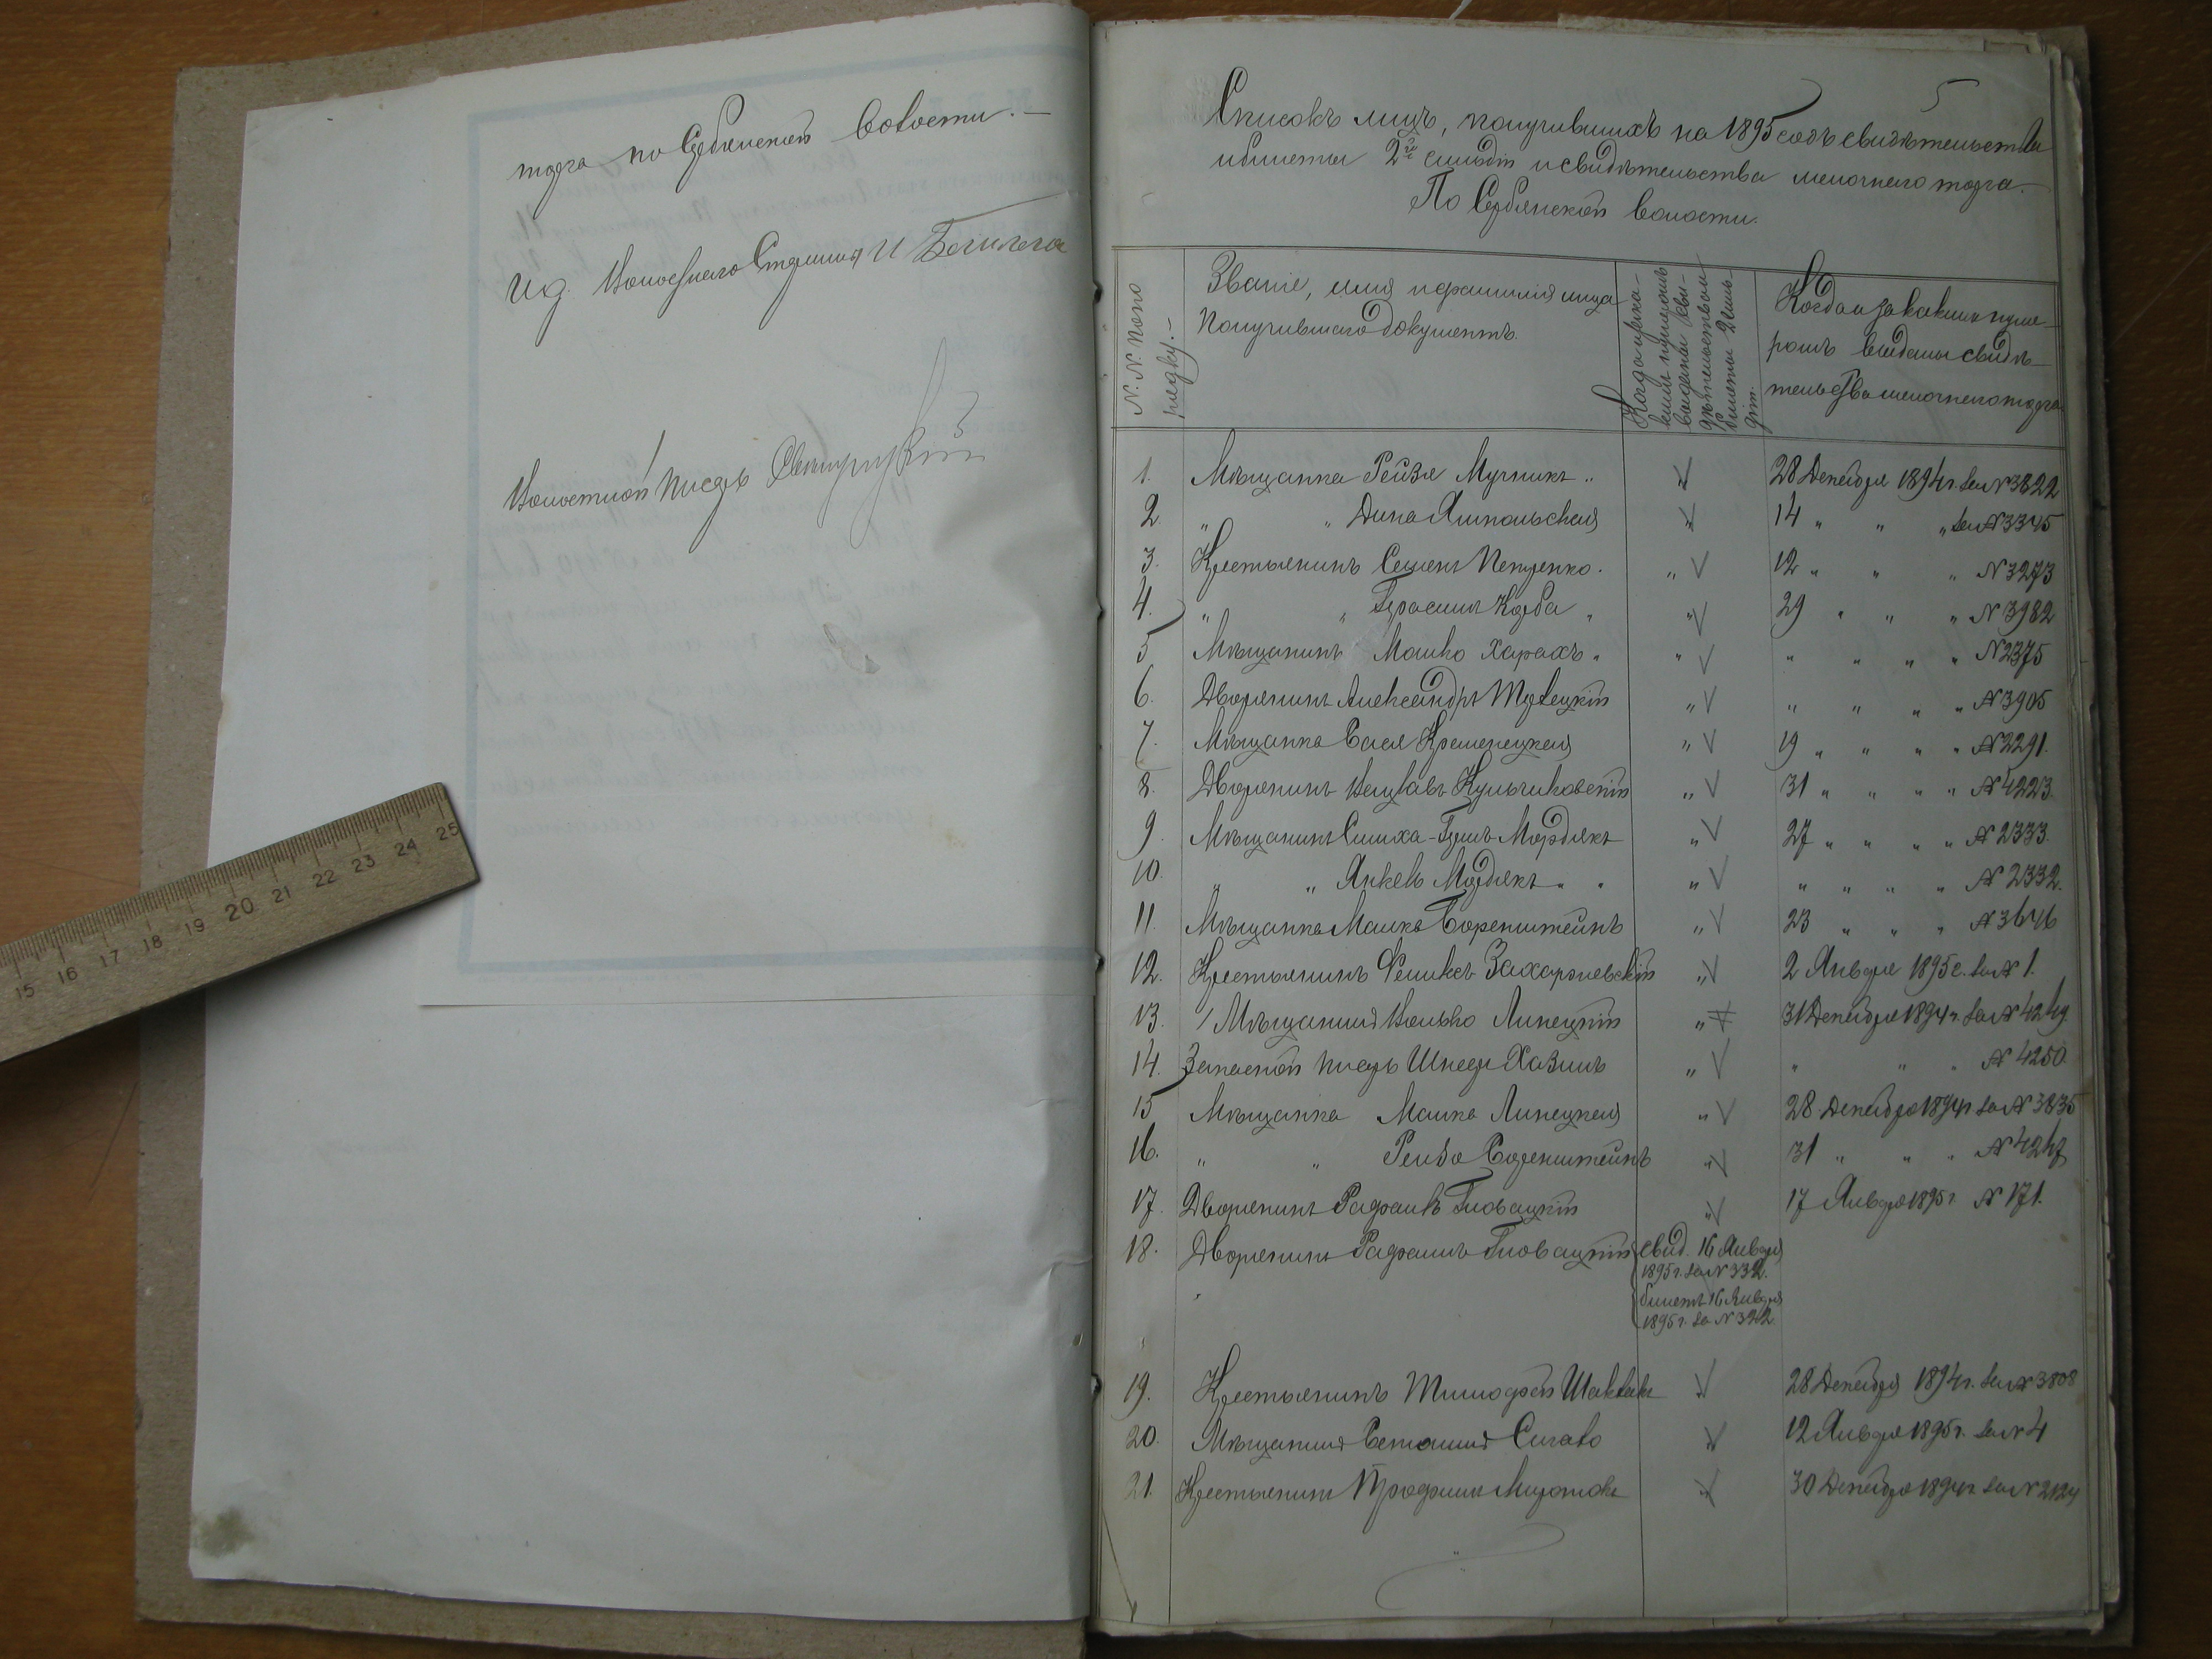 торга по Сербянской волости.—
И д. Волостного Старшины И
Волостной писарь
5
Списокъ лицъ, получившихъ на 1895 годъ свидѣтельства
и билеты 2й гильдіи и свидѣтельства мелочнаго торга.
По Сербянской волости.
N. N. по по
рядку.—
Званіе, имя и фамилія лица
получившаго документъ.
Когда и за ка-
кимъ нумеромъ
выданы сви-
дѣтельства и
билеты 2 гиль-
діи.
Когда и за какимъ нуме-
ромъ выданы свидѣ-
тельства мелочнаго торга
1. Мѣщанка Рейзя Мучникъ „ 28 Декабря 1894 г. за N 3822
2. „ „ Дина Ямпольская „ 14 „ „ „ за N 3345
3. Крестьянинъ Семенъ Петренко. „ 12 „ „ „ N 3273
4. „ „ Герасимъ Корба „ „ 29 „ „ „ N 3982
5 Мѣщанинъ Мошко Харахъ „ „ „ „ „ „ N 2375
6. Дворянинъ Александръ „ „ „ „ „ N 3905
7. Мѣщанка Бася Кременецкая „ 19 „ „ „ N 2291.
8. Дворянинъ Кульчиковскій „ 31 „ „ „ N 4223.
9. Мѣщанинъ Симха-Гершъ Мордякъ „ 27 „ „ „ N 2333.
10. „ „ Янкель Мордякъ „ „ „ „ „ „ „ N 2332.
11. Мѣщанка Малка Боренштейнъ „ 23 „ „ „ N 3646
12. Крестьянинъ Феликсъ Захаржевскій „ 2 Января 1895 г. за N 1.
13. Мѣщанинъ Волько Липецкій „ 31 Декабря 1894 г. за N 4249.
14. Запасной писарь Шнеер Хазинъ „ „ „ „ N 4250.
15 Мѣщанка Малка Липецкая „ 28 Декабря 1894 г за N 3835
16. „ „ Рейза Боренштейнъ „ 31 „ „ „ N 4247
17. Дворянинъ Рафаилъ Гловацкій „ 17 Января 1895 г N 171.
18. Дворянинъ Рафаилъ Гловацкій свид. 16 Января
1895 г. за N 332.
билетъ 16 Января
1895 г. за N 322.
19. Крестьянинъ Тимофей „ 28 Декабря 1894 г. за N 3808
20. Мѣщанинъ Бенъяминъ Сигалъ „ 12 Января 1895 г. за N 4
21. Крестьянинъ Трофимъ „ 30 Декабря 1894 г. за N
15 16 17 18 19 20 21 22 23 24 25